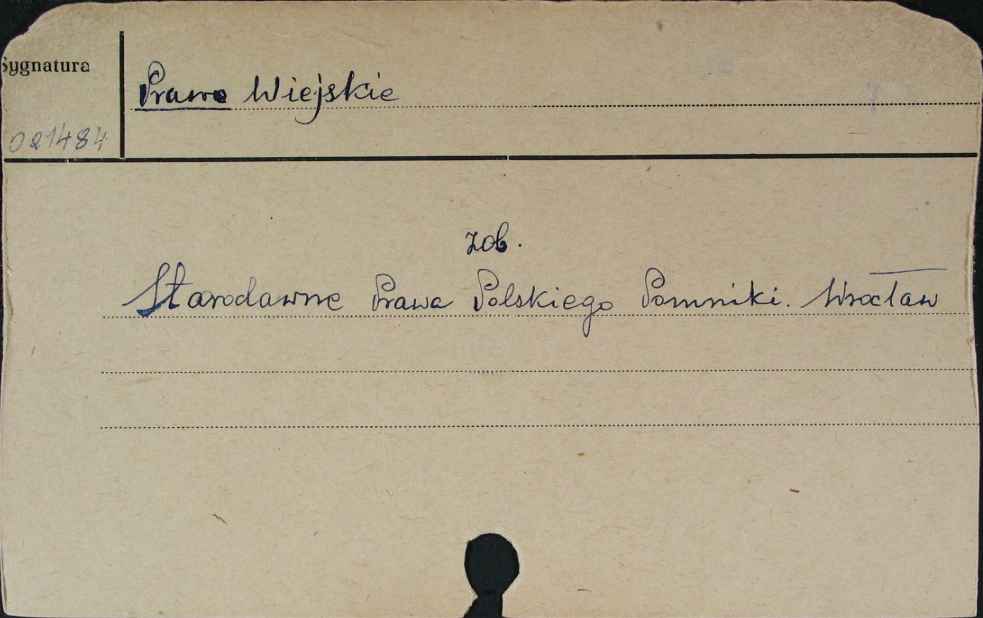 Sygnatura
Prawo Wiejskie
021484
zob.
Starodawne Prawa Polskiego Pomniki. Wrocław